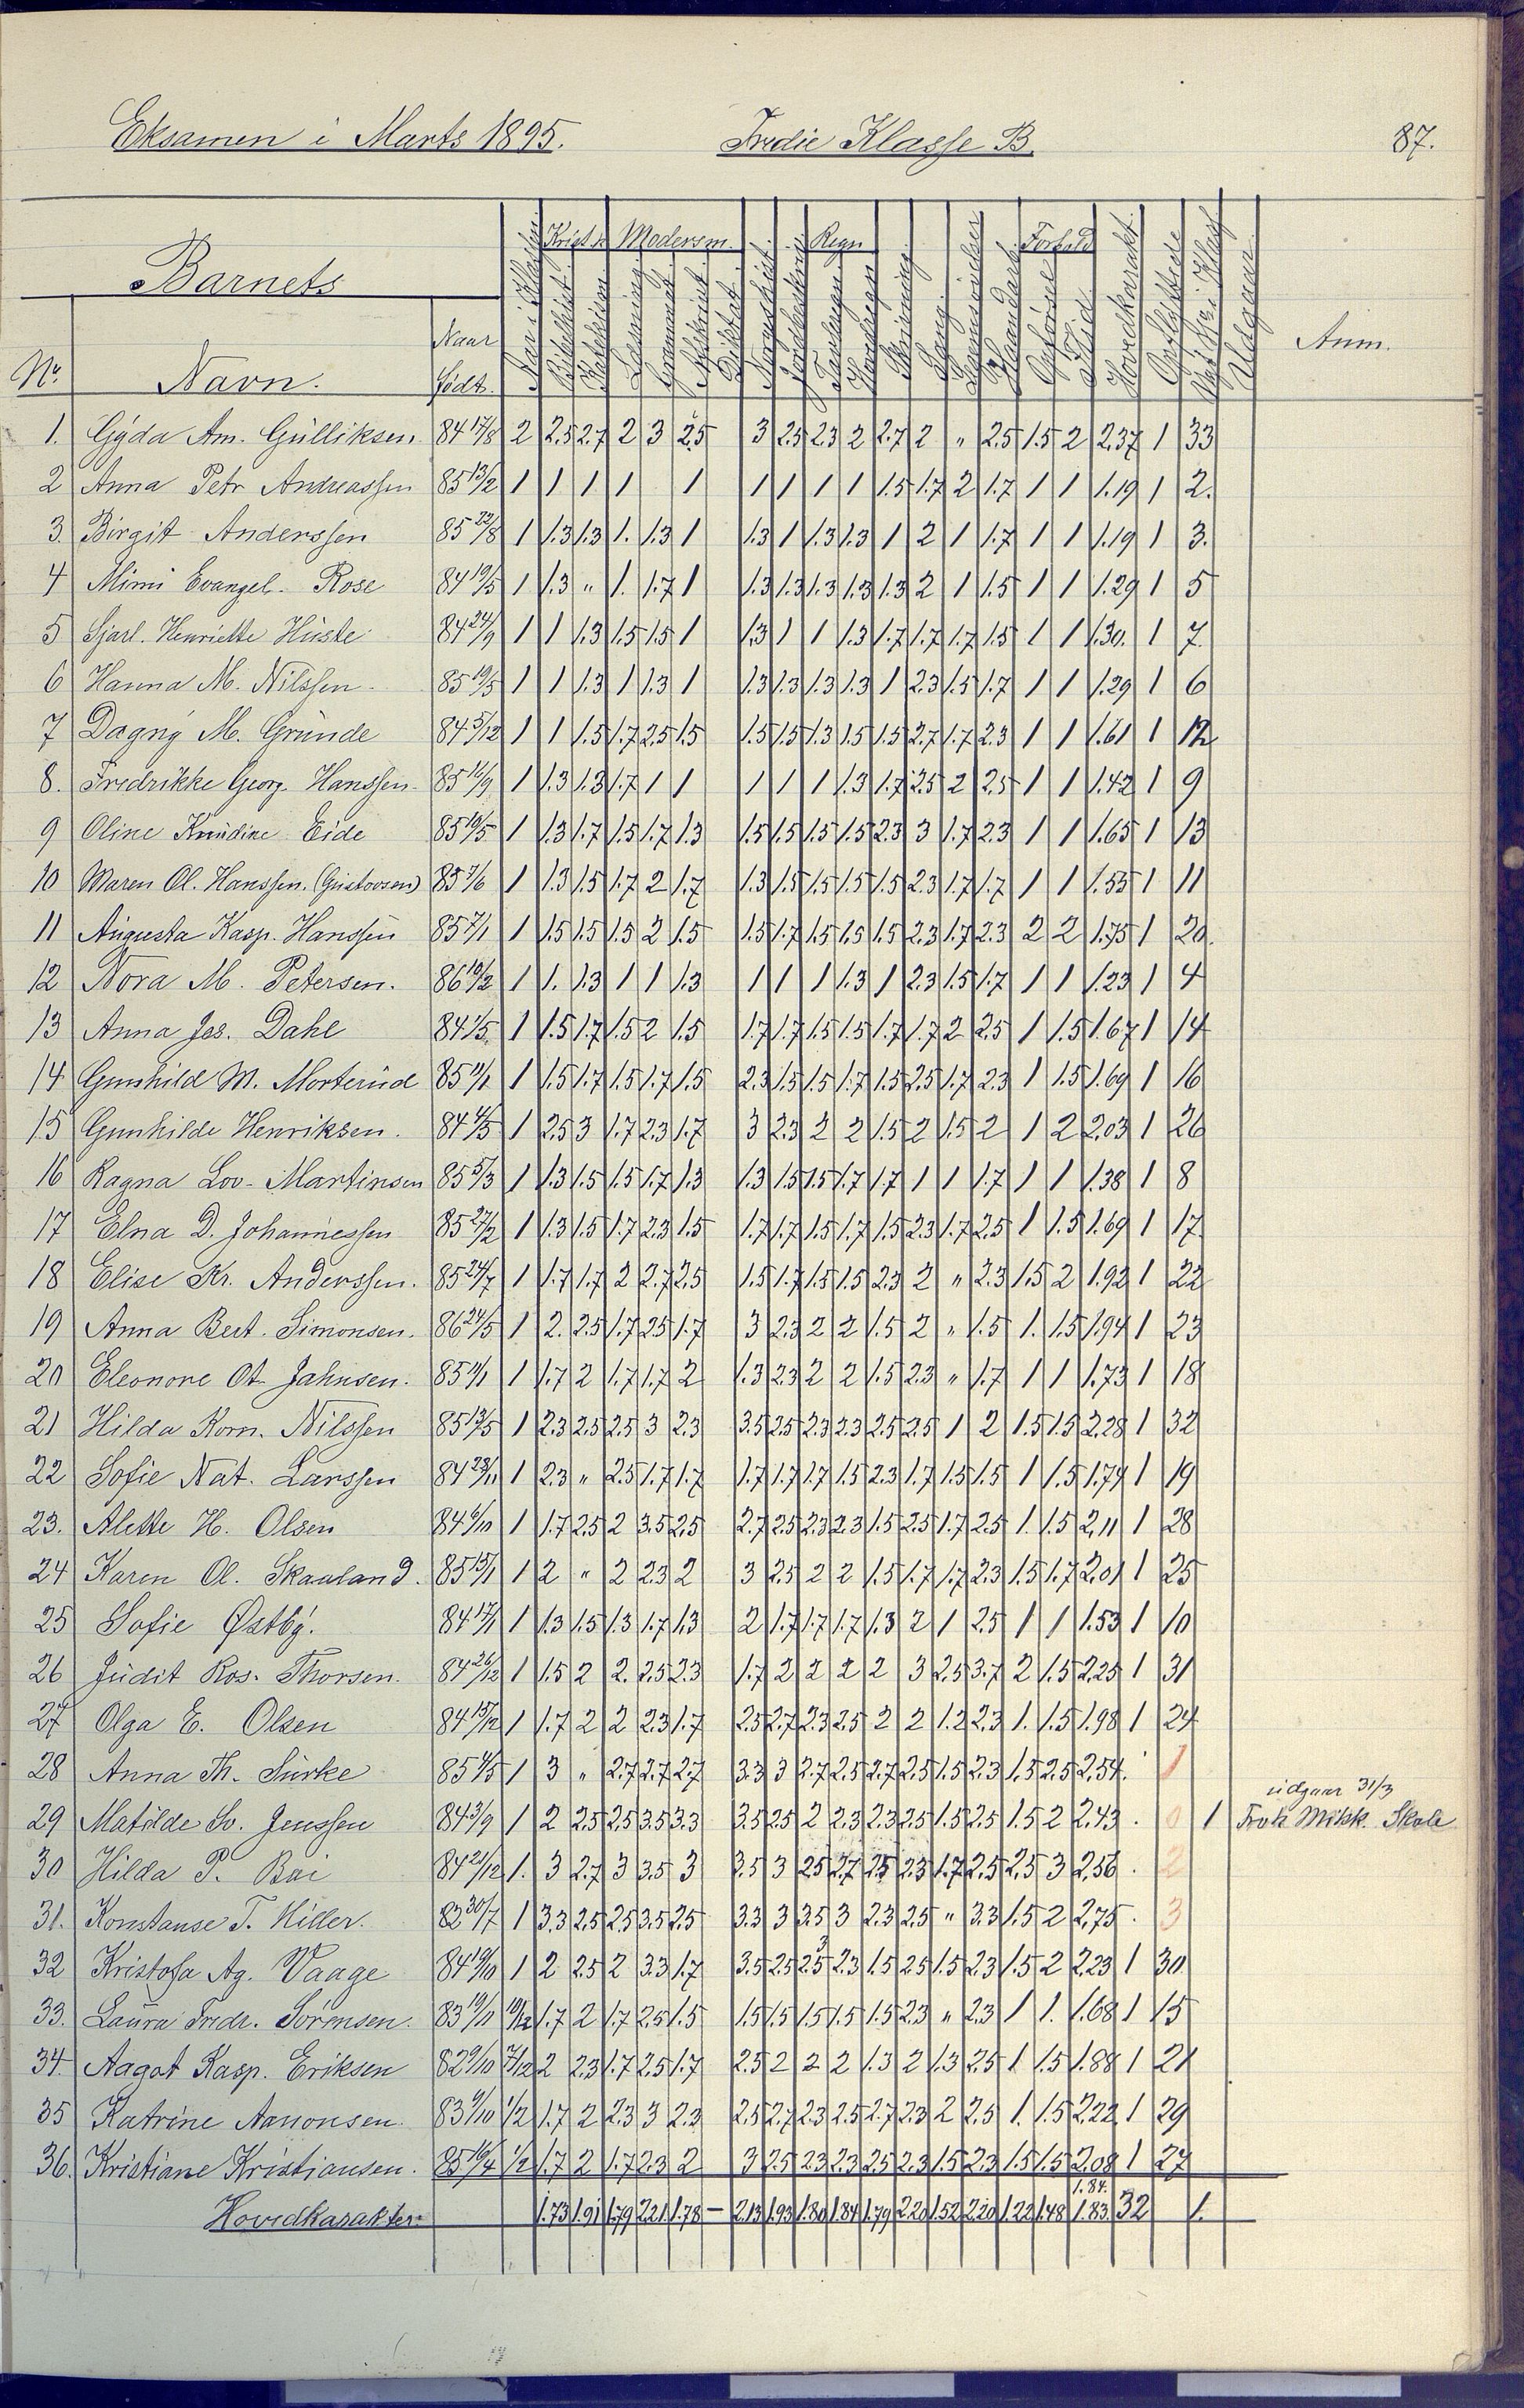 Eksamen i Marts 1895. Tredie Klasse B. 87.
Kristd. Modersm. Regn Forhold
Barnets
Nr. Navn. Naar født. Aar i Klassen Bibelhist. Katekism Læsning Grammat. Afskrivt. Diktat Norgeshist. Jordbeskriv. Tavleregn Hovedregn Skrivning Sang. Gymnastik Haandarb. Opførsel Flid Hovedkarakt. Opflyttede Nyt Nr. i Klas. Udgaaet Anm.
1. Gyda Am. Gulliksen. 84 17/8 2 2.5 2.7 2 3 2.5 3 2.5 2.3 2 2.7 2 " 2.5 1.5 2 2.37 1 33
2 Anna Petr Andreassen 85 13/2 1 1 1 1 1 1 1 1 1 1.5 1.7 2 1.7 1 1 1.19 1 2.
3. Birgit Anderssen 85 22/8 1 1.3 1.3 1. 1.3 1 1.3 1 1.3 1.3 1 2 1 1.7 1 1 1.19 1 3.
4 Mimi Evangel. Rose 84 19/5 1 1.3 " 1. 1.7 1 1.3 1.3 1.3 1.3 1.3 2 1 1.5 1 1 1.29 1 5
5 Sjarl. Henriette Huste 84 24/9 1 1 1.3 1.5 1.5 1 1.3 1 1 1.3 1.7 1.7 1.7 1.5 1 1 1.30. 1 7
6 Hanna M. Nilssen 85 19/5 1 1 1.3 1 1.3 1 1.3 1.3 1.3 1.3 1 2.3 1.5 1.7 1 1 1.29 1 6
7 Dagny M. Grunde 84 5/12 1 1 1.5 1.7 2.5 1.5 1.5 1.5 1.3 1.5 1.5 2.7 1.7 2.3 1 1 1.61 1 12
8. Fredrikke Georg. Hanssen 85 16/9 1 1.3 1.3 1.7 1 1 1 1 1 1.3 1.7 2.5 2 2.5 1 1 1.42 1 9
9 Oline Knudine Eide 85 19/5 1 1.3 1.7 1.5 1.7 1.3 1.5 1.5 1.5 1.5 2.3 3 1.7 2.3 1 1 1.65 1 13
10 Maren Ol. Hanssen. (Gustavsen) 85 7/6 1 1.3 1.5 1.7 2 1.7 1.3 1.5 1.5 1.5 1.5 2.3 1.7 1.7 1 1 1.55 1 11
11 Augusta Kasp. Hanssen 85 7/1 1 1.5 1.5 1.5 2 1.5 1.5 1.7 1.5 1.5 1.5 2.3 1.7 2.3 2 2 1.75 1 20.
12 Nora M. Petersen. 86 10/2 1 1. 1.3 1 1 1.3 1 1 1 1.3 1 2.3 1.5 1.7 1 1 1.23 1 4
13 Anna Jos. Dahl 84 1/5 1 1.5 1.7 1.5 2 1.5 1.7 1.7 1.5 1.5 1.7 1.7 2 2.5 1 1.5 1.67 1 14
14 Gunhild M. Morterud 85 11/1 1 1.5 1.7 1.5 1.7 1.5 2.3 1.5 1.5 1.7 1.5 2.5 1.7 2.3 1 1.5 1.69 1 16
15 Gunhilde Henriksen. 84 4/5 1 2.5 3 1.7 2.3 1.7 3 2.3 2 2 1.5 2 1.5 2 1 2 2.03 1 26
16 Ragna Lov. Martinsen 85 5/3 1 1.3 1.5 1.5 1.7 1.3 1.3 1.5 1.5 1.7 1.7 1 1 1.7 1 1 1.38 1 8
17 Elna D. Johannessen 85 27/2 1 1.3 1.5 1.7 2.3 1.5 1.7 1.7 1.5 1.7 1.5 2.3 1.7 2.5 1 1.5 1.69 1 17
18 Elise Kr. Anderssen. 85 24/7 1 1.7 1.7 2 2.7 2.5 1.5 1.7 1.5 1.5 2.3 2 " 2.3 1.5 2 1.92 1 22
19 Anna Bert. Simonsen. 86 24/5 1 2. 2.5 1.7 2.5 1.7 3 2.3 2 2 1.5 2 " 1.5 1. 1.5 1.94 1 23
20 Eleonore Ot. Jahnsen. 85 11/1 1 1.7 2 1.7 1.7 2 1.3 2.3 2 2 1.5 2.3 " 1.7 1 1 1.73 1 18
21 Hilda Korn. Nilssen 85 13/5 1 2.3 2.5 2.5 3 2.3 3.5 2.5 2.3 2.3 2.5 2.5 1 2 1.5 1.5 2.28 1 32
22 Sofie Nat. Larssen 84 23/11 1 2.3 " 2.5 1.7 1.7 1.7 1.7 1.7 1.5 2.3 1.7 1.5 1.5 1 1.5 1.74 1 19
23. Alette H. Olsen 84 6/10 1 1.7 2.5 2 3.5 2.5 2.7 2.5 2.3 2.3 1.5 2.5 1.7 2.5 1. 1.5 2.11 1 28
24 Karen Ol. Skauland. 85 15/1 1 2 " 2 2.3 2 3 2.5 2 2 1.5 1.7 1.7 2.3 1.5 1.7 2.01 1 25
25 Sofie Østby. 84 17/1 1 1.3 1.5 1.3 1.7 1.3 2 1.7 1.7 1.7 1.3 2 1 2.5 1 1 1.53 1 10
26 Judit Ros. Thorsen. 84 26/12 1 1.5 2 2. 2.5 2.3 1.7 2 2 2 2 3 2.5 3.7 2 1.5 2.25 1 31
27 Olga E. Olsen 84 15/12 1 1.7 2 2 2.3 1.7 2.5 2.7 2.3 2.5 2 2 1.2 2.3 1. 1.5 1.98 1 24
28 Anna Th. Surke 85 4/5 1 3 " 2.7 2.7 2.7 3.3 3 2.7 2.5 2.7 2.5 1.5 2.3 1.5 2.5 2.54. 1
udgaar 31/3
29 Matilde Sv. Jenssen 84 3/9 1 2 2.5 2.5 3.5 3.3 3.5 2.5 2 2.3 2.3 2.5 1.5 2.5 1.5 2 2.43. 0 1 Frøk Skole
30 Hilda P. Bai 84 21/12 1. 3 2.7 3 3.5 3 3.5 3 2.5 2.7 2.5 2.3 1.7 2.5 2.5 3 2.56. 2
31. Konstanse T. Hiller. 82 30/7 1 3.3 2.5 2.5 3.5 2.5 3.3 3 3.5 3 2.3 2.5 " 3.3 1.5 2 2.75. 3
32 Kristofa Ag. Vaage 84 19/10 1 2 2.5 2 3.3 1.7 3.5 2.5 2.5 2.3 1.5 2.5 1.5 2.3 1.5 2 2.23 1 30
33. Laura Fredr. Sørensen. 83 19/11 10/12 1.7 2 1.7 2.5 1.5 1.5 1.5 1.5 1.5 1.5 2.3 " 2.3 1 1. 1.68 1 15
34. Aagot Kasp. Eriksen 82 9/10 7/12 2 2.3 1.7 2.5 1.7 2.5 2 2 2 1.3 2 1.3 2.5 1. 1.5 1.88 1 21
35 Katrine Aanonsen 83 9/10 1/2 1.7 2 2.3 3 2.3 2.5 2.7 2.3 2.5 2.7 2.3 2 2.5 1. 1.5 2.22 1 29
36. Kristiane Kristiansen. 85 16/4 1/2 1.7 2 1.7 2.3 2 3 2.5 2.3 2.3 2.5 2.3 1.5 2.3 1.5 1.5 2.08 1 27
1.84.
Hovedkarakter: 1.73 1.91 1.79 2.21 1.78 – 2.13 1.93 1.80 1.84 1.79 2.20 1.52 2.20 1.22 1.48 1.83. 32 1.